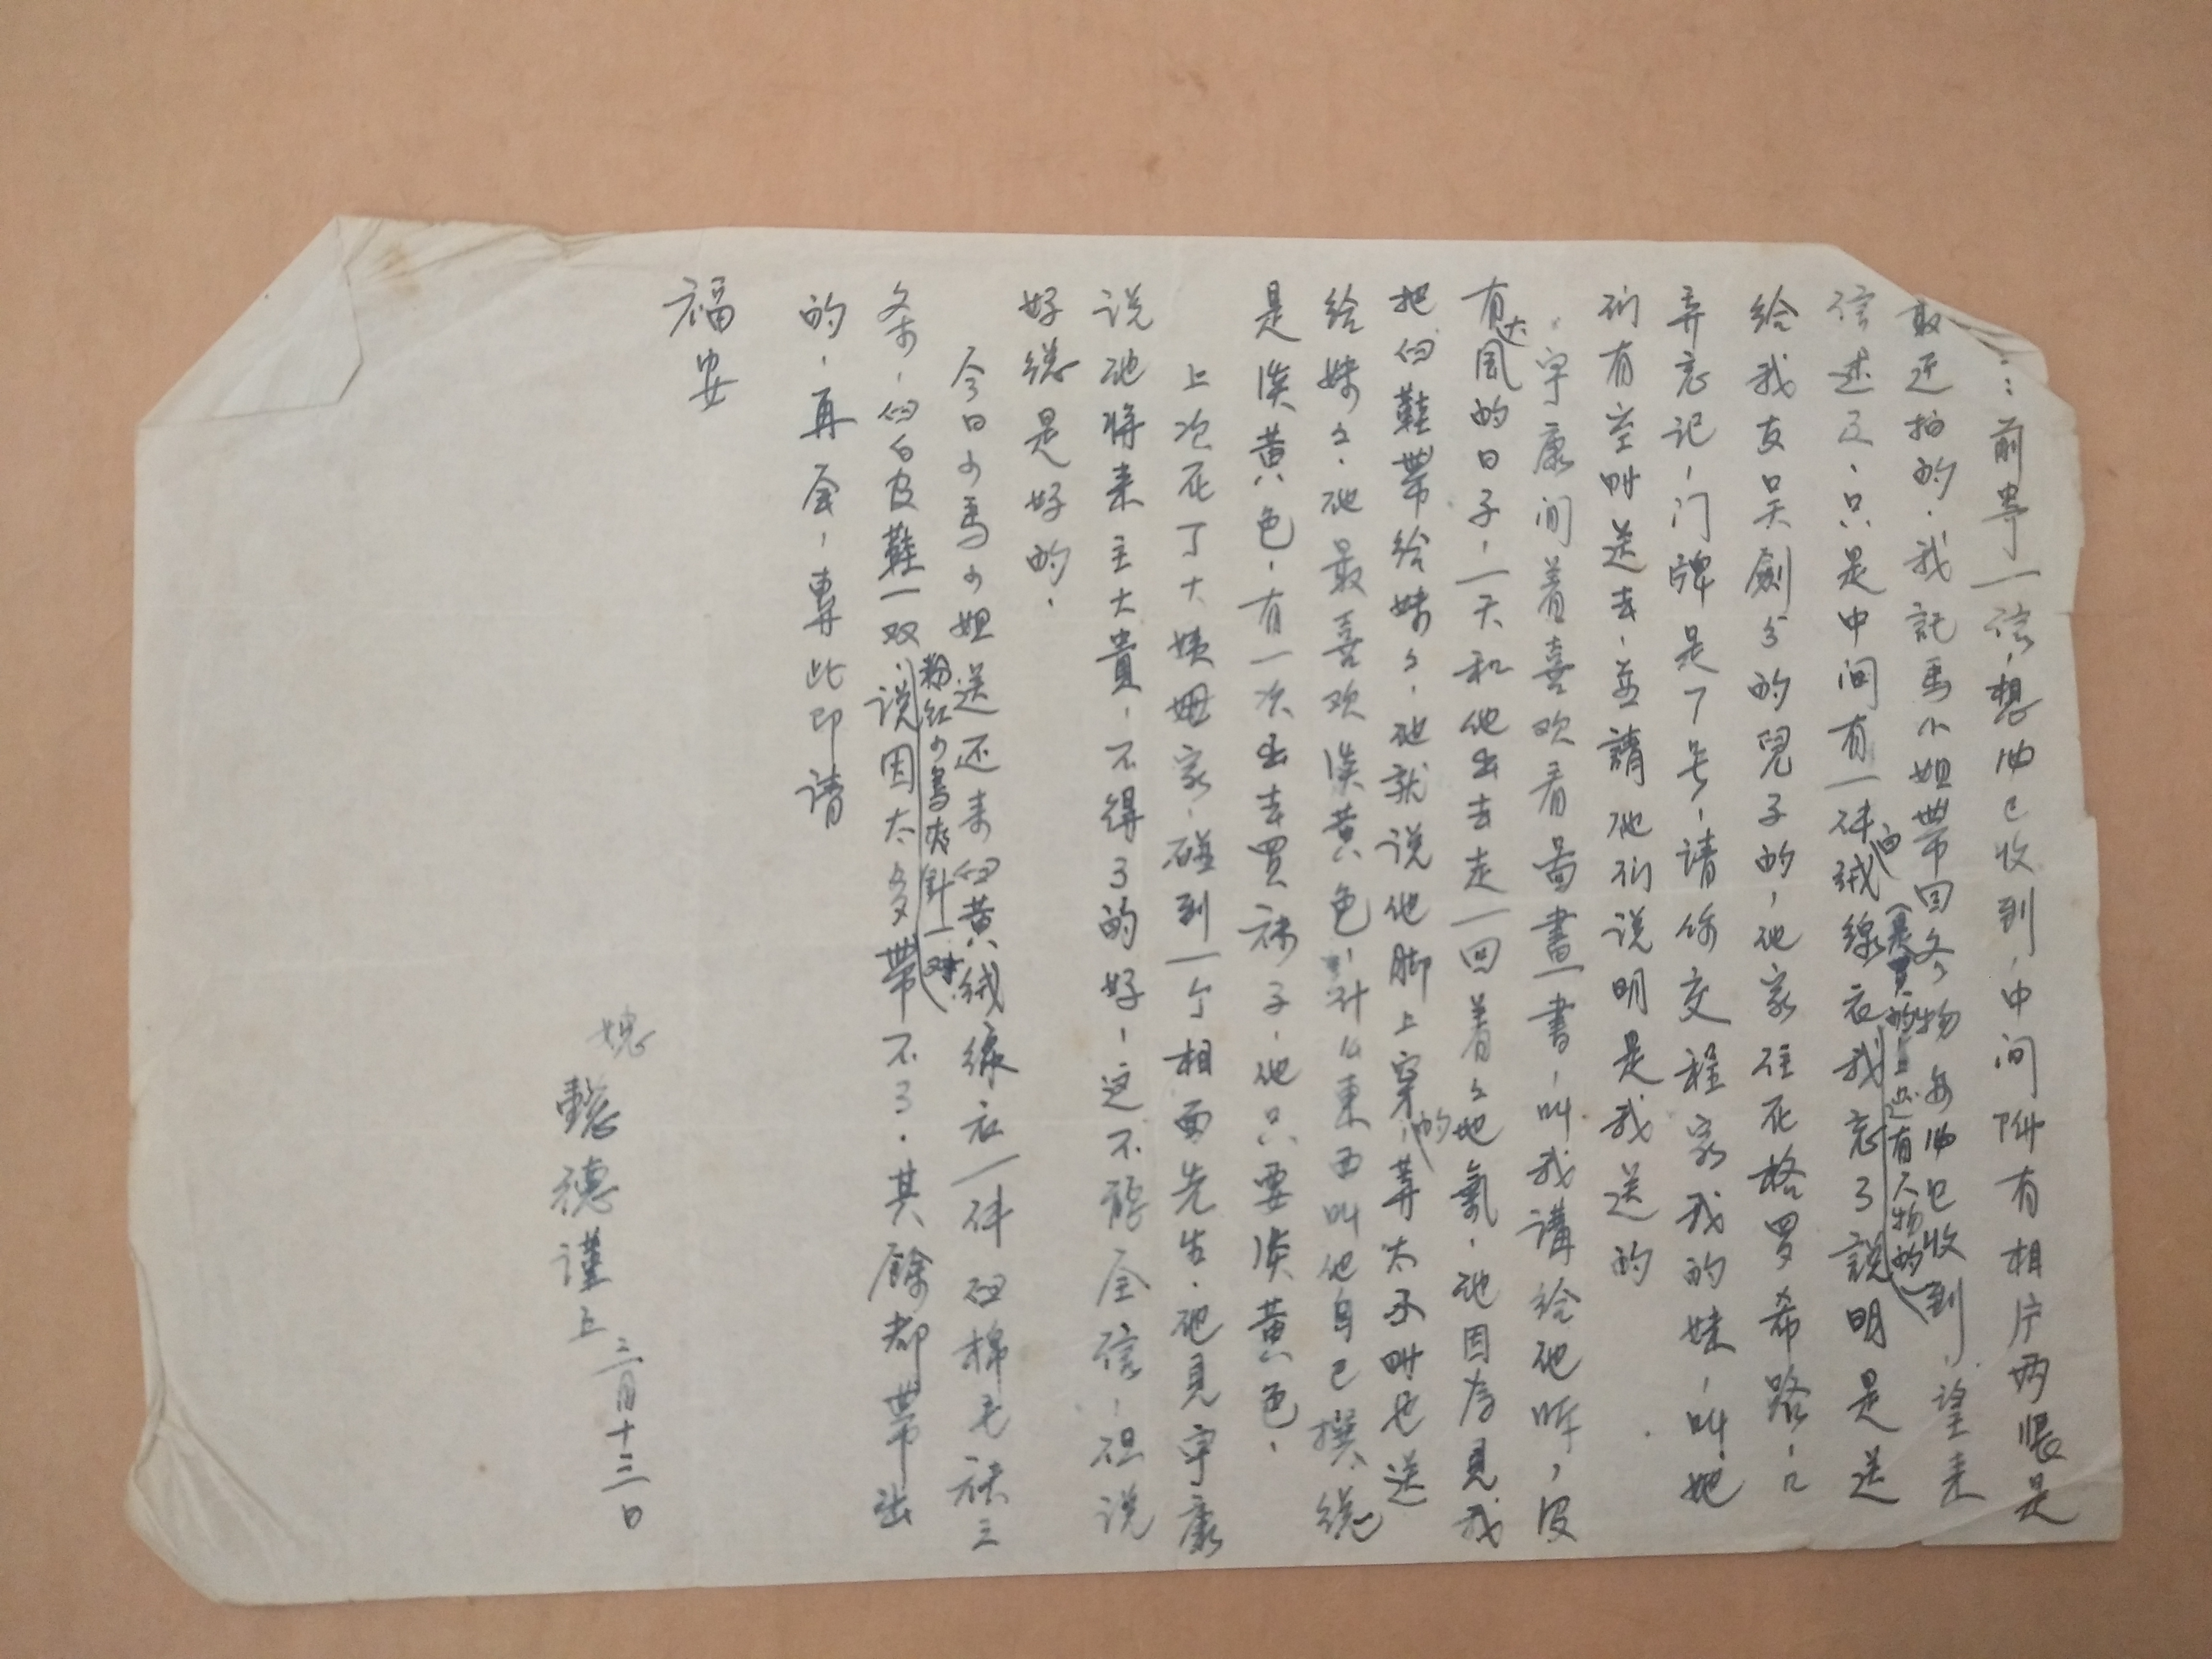 前寄一信，想伯已收到，中间附有相片两張是
最近拍的，我託馬小姐帶回各物每伯已收到，望来
信述及，只是中间有一件绒線衣我忘了說明是送
(是買的还有人物的)
给我友吴劍
的兒子的，他家住在格罗希路，
弄忘记，门牌是7号，请你交程家我的妹，叫她
们有空时送去，並請他们说明是我送的
宇康间着喜欢看图畫書，叫我講给他听，没
有大風的日子，一天和他出去走一回着々地氣，他因为見我
把的鞋帶给妹々，他就说他脚上穿的
太小叫也送
给妹々，他最喜欢淡黄色，什么東西叫他自己撰總
是淡黄色，有一次出去買袜子，他只要淡黄色，
上次在了大姨姆家，碰到一个相面先生，他見宇康
说他将来主大貴，不得了的好，这不能全信，但说
好總是好的，
今日
馬
姐送还来的黄绒線衣一件
棉毛裤三
条，的白皮鞋一双，说因太多帶不了，其餘都帶出
粉红
夾針一对
的，再会，專此即请
福安
媳
懿德谨上 二月十三日